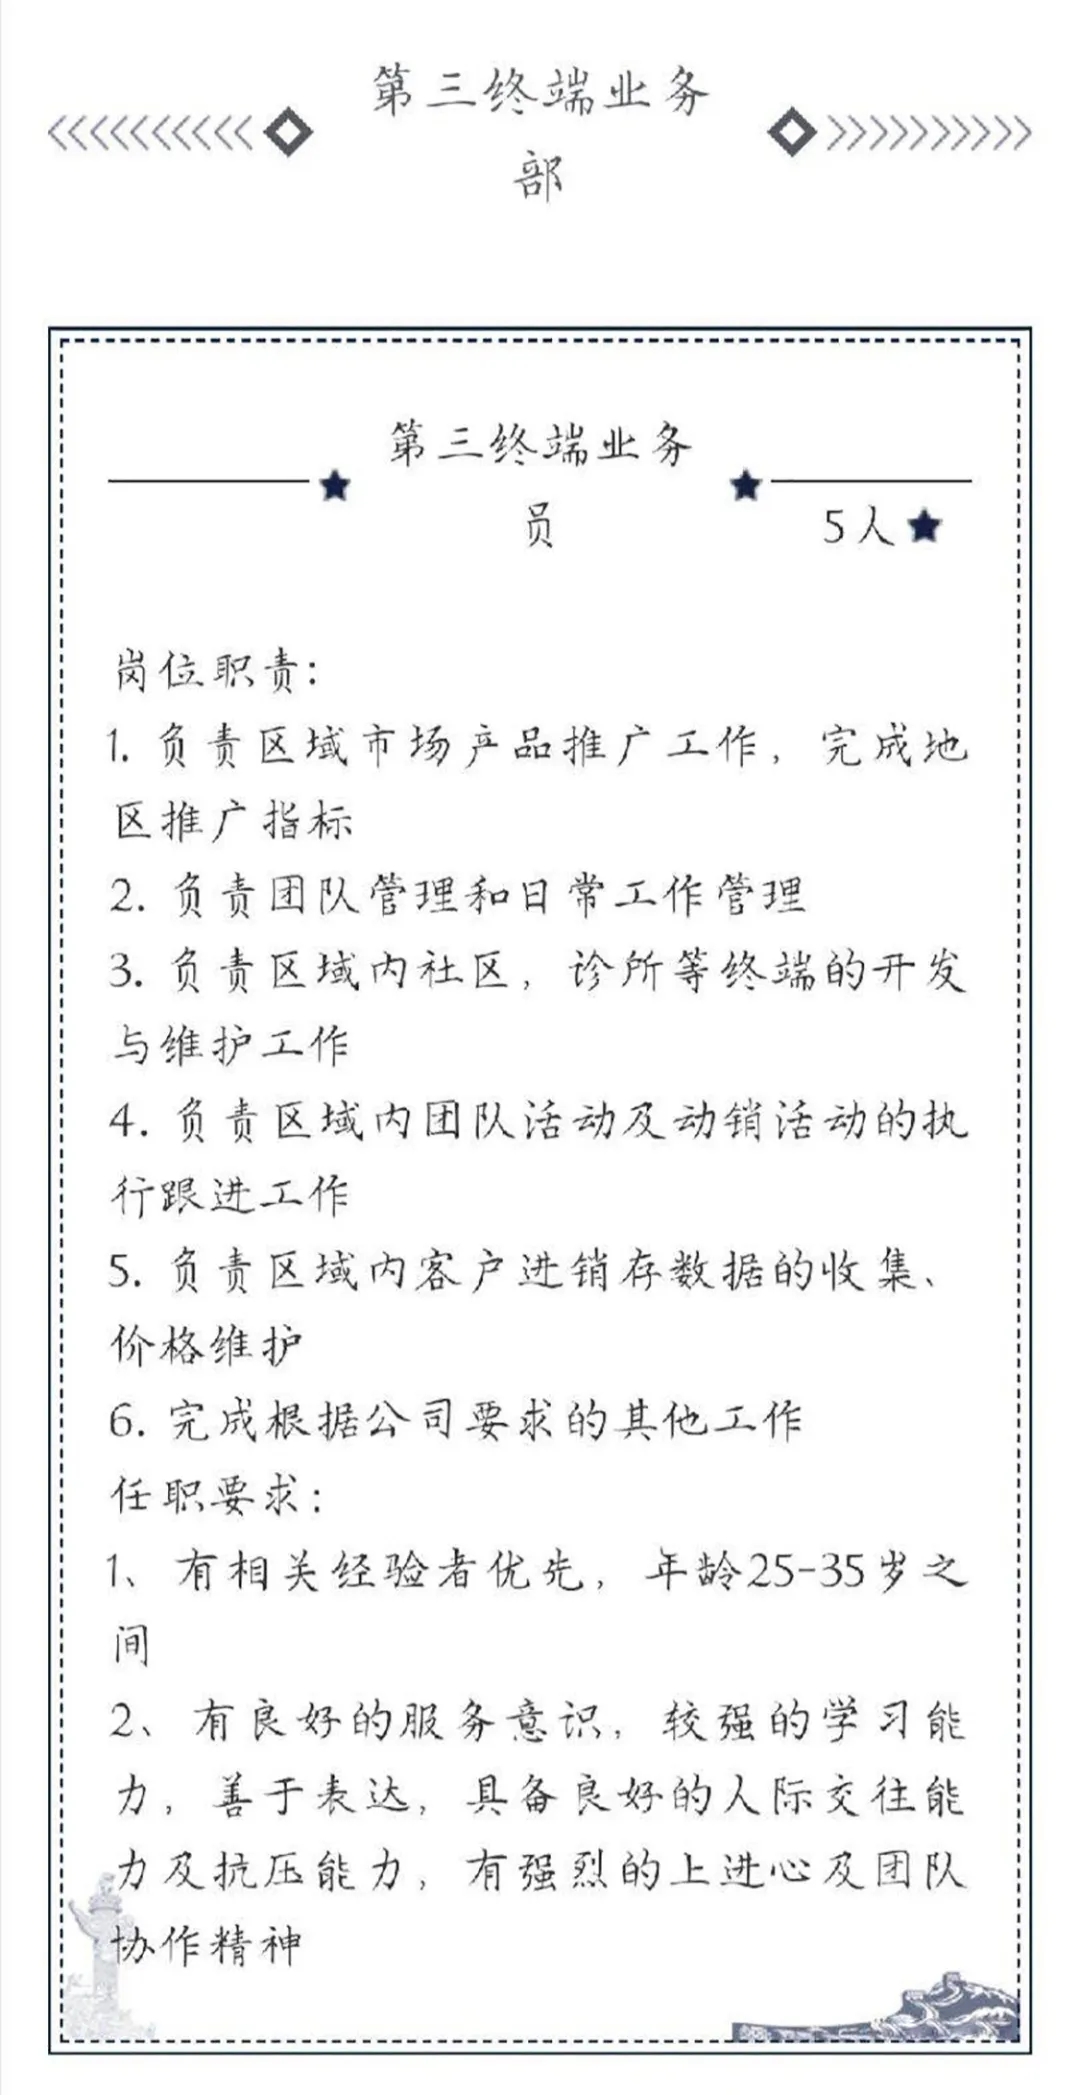 第三终端业务
部
第三终端业务
员
5人
岗位职责：
1. 负责区域市场产品推广工作，完成地
区推广指标
2. 负责团队管理和日常工作管理
3. 负责区域内社区，诊所等终端的开发
与维护工作
4. 负责区域内团队活动及动销活动的执
行跟进工作
5. 负责区域内客户进销存数据的收集、
价格维护
6. 完成根据公司要求的其他工作
任职要求：
1、有相关经验者优先，年龄25-35岁之
间
2、有良好的服务意识，较强的学习能
力，善于表达，具备良好的人际交往能
力及抗压能力，有强烈的上进心及团队
协作精神